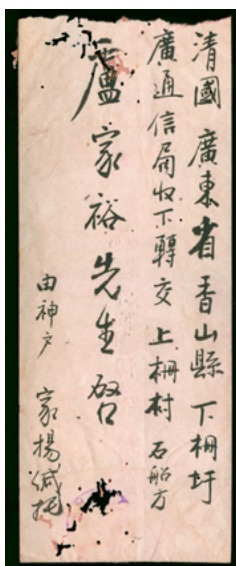 清國 廣東省香山縣下柵圩
廣通信局收下轉交 上柵村 石船方
盧家裕先生啓
由神戶 家揚緘托